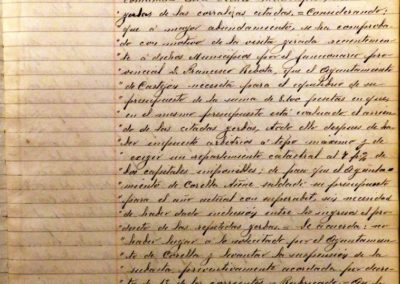 yerbas de las corralizas citadas. = Considerando;
que á mayor abundamiento, se ha comproba-
do con motivo de la visita girada recientemen-
te á dichos Municipios por el funcionario pro-
vincial D. Francisco que el Ayuntamiento
de Castejón necesita para el equilibrio de su
presupuesto de la suma de pesetas en que
en el mismo presupuesto está evaluado el arrien-
do de las citadas yerbas, todo ello despues de ha-
ber impuesto arbitrios á tipo máximo y de
exigir un repartimiento catastral al
los capitales imponibles; de que el Ayunta-
miento de Corella tiene saldado su presupuesto
para el año actual con superabit, sin necesidad
de haber dado inclusion entre los ingresos el pro-
ducto de las repetidas yerbas. = Se acuerda: no
haber lugar á lo solicitado por el Ayuntamien-
to de Corella y levantar la suspensión de la
subasta preventivamente acordada por decre-
to de de los corrientes =